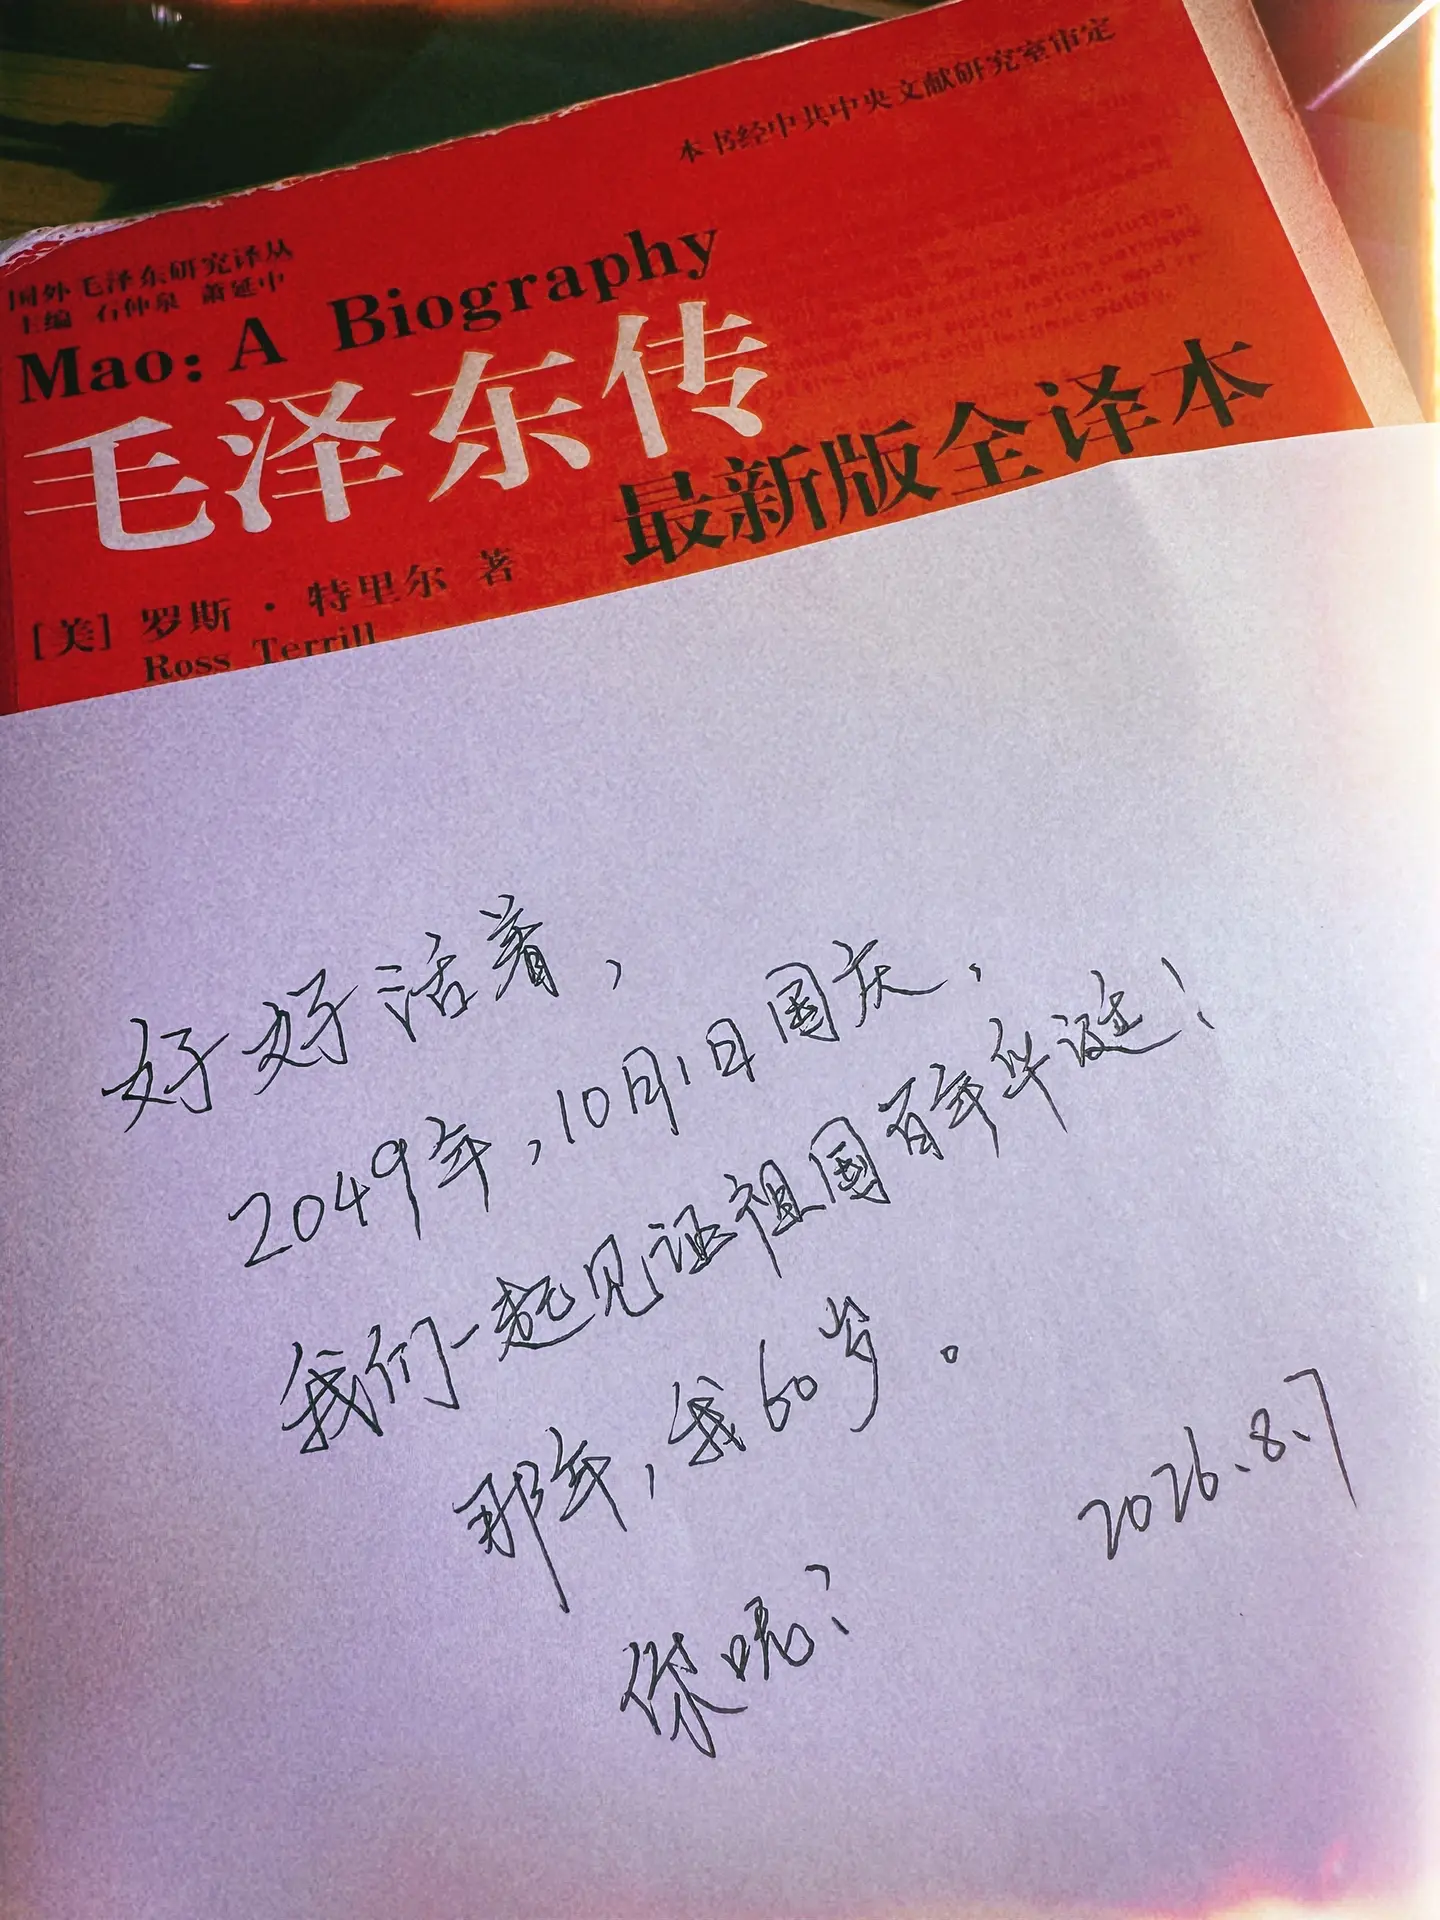 本书经中共中央文献研究室审定
国外毛泽东研究译丛
主编 石仲泉 萧延中
Mao: A Biography
毛泽东传
最新版全译本
[美] 罗斯·特里尔 著
Ross Terrill
好好活着，
2049年，10月1日国庆，
我们一起见证祖国百年华诞！
那年，我60岁。
2026.8.7
你呢？